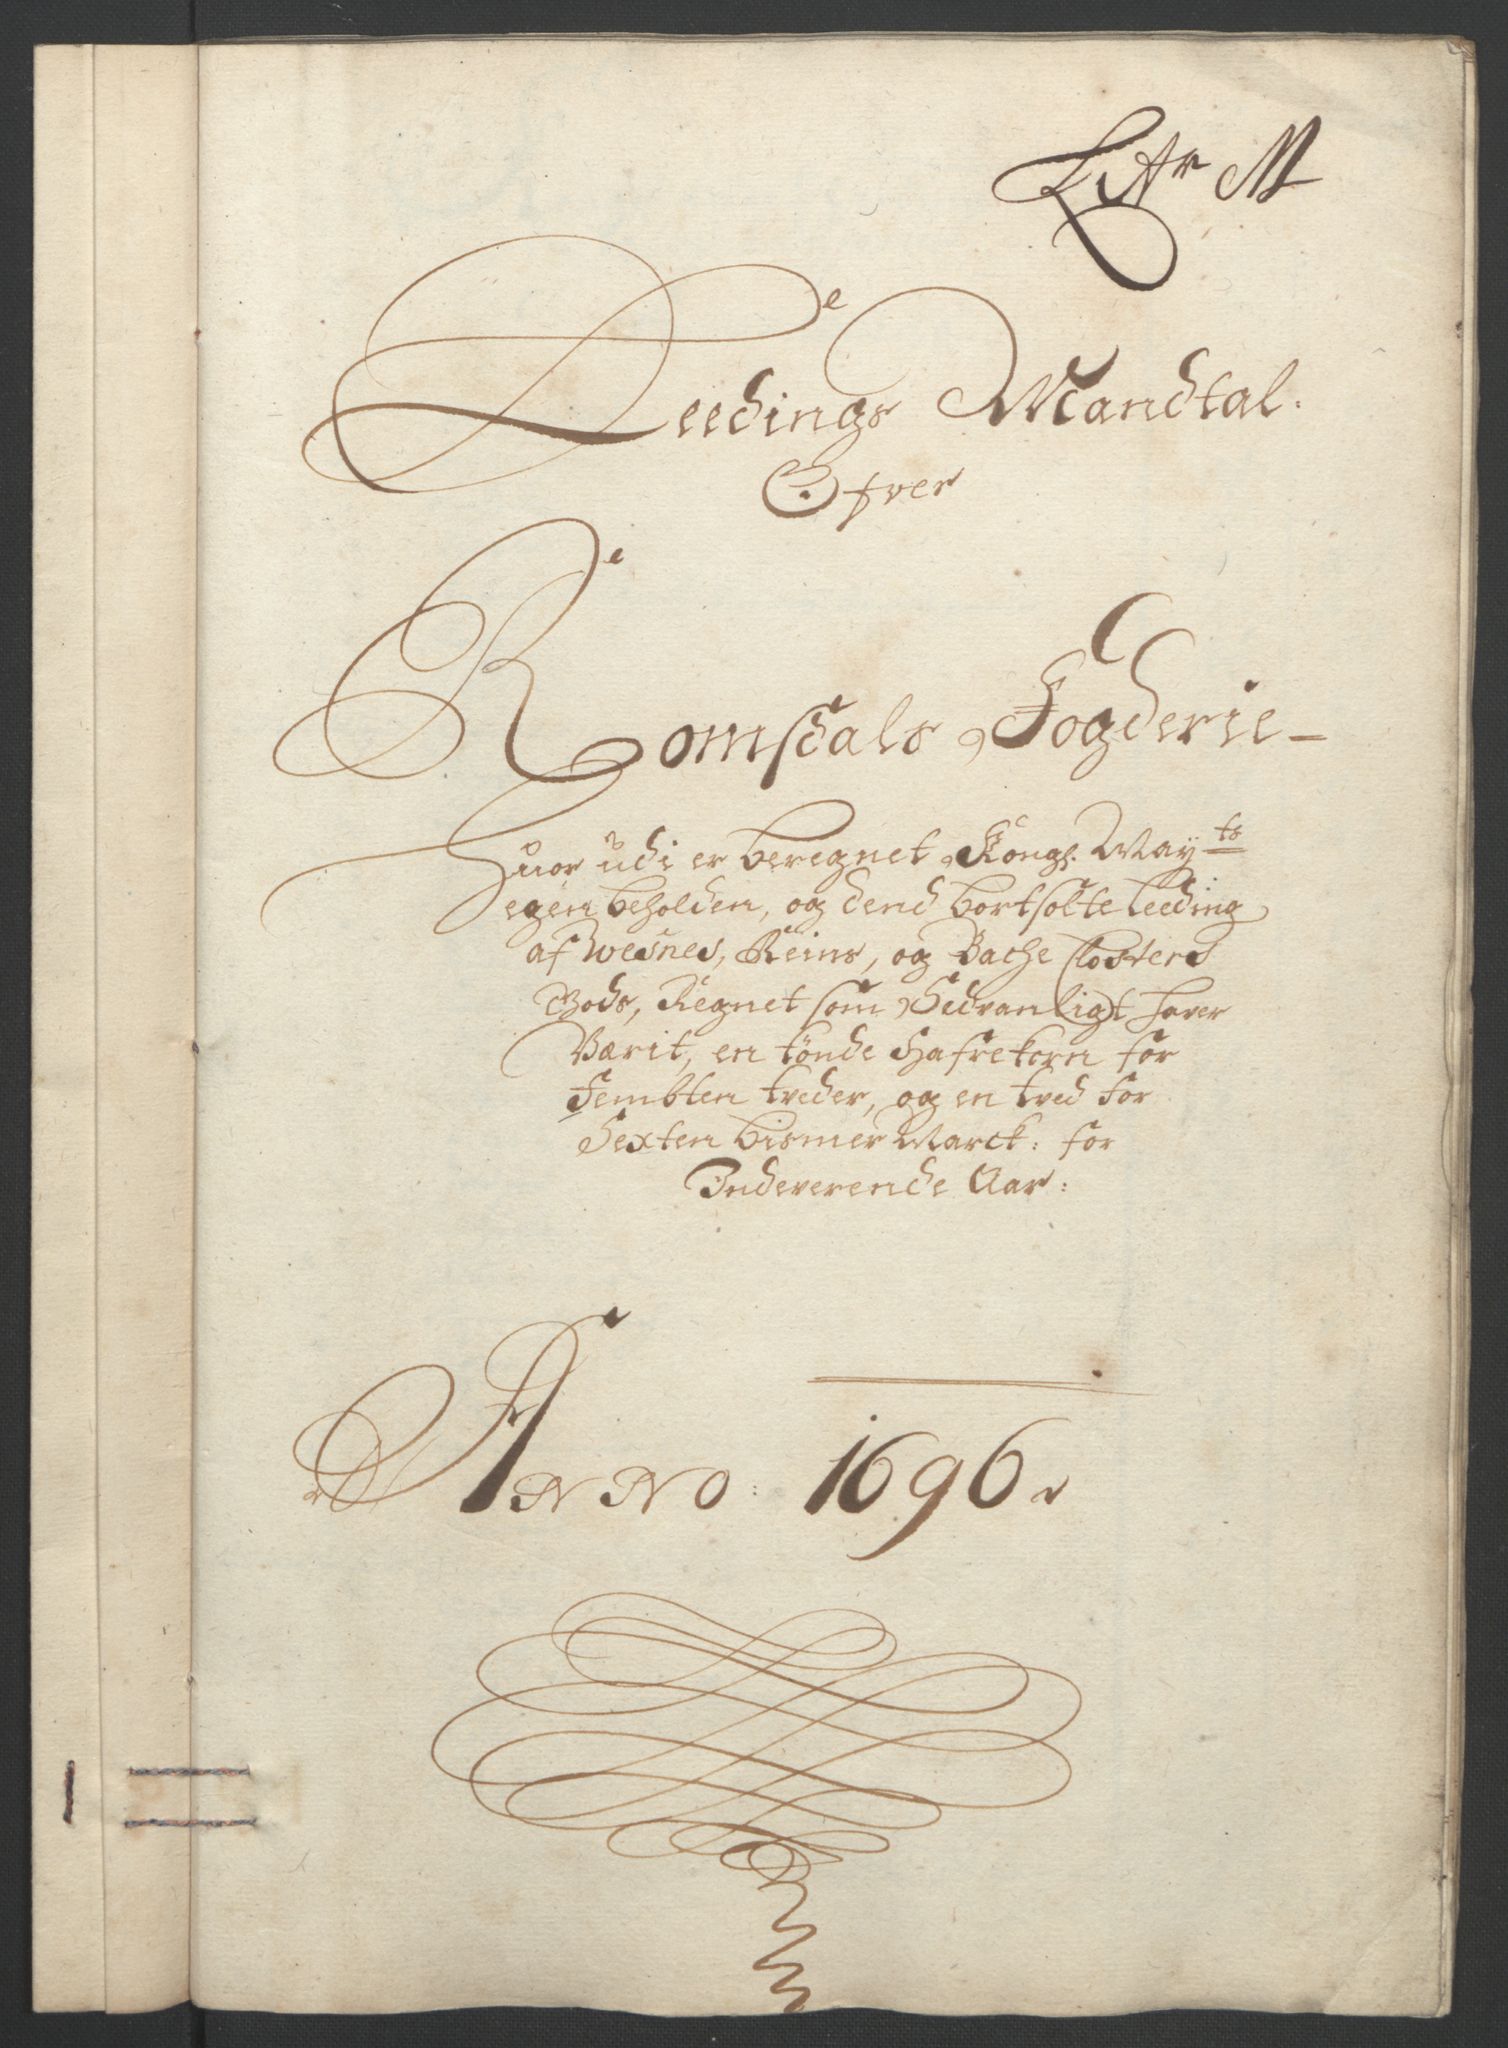 Litr M
Leedings Mandtal.
Ofver
Romsdals Fogderie
Huor udi er beregnet Kongl. May<sup>ts</sup>
egen beholden, og dend bortsolte leeding
af Wesnes, Reins, og Bache Closters
Gods, Regnet som Sedvanligt haver
Værit, en tønde Hafrekorn for
Fembten treder, og en tred for
Sexten bismer Marck: for
Indeverende Aar:
Anno: 1696